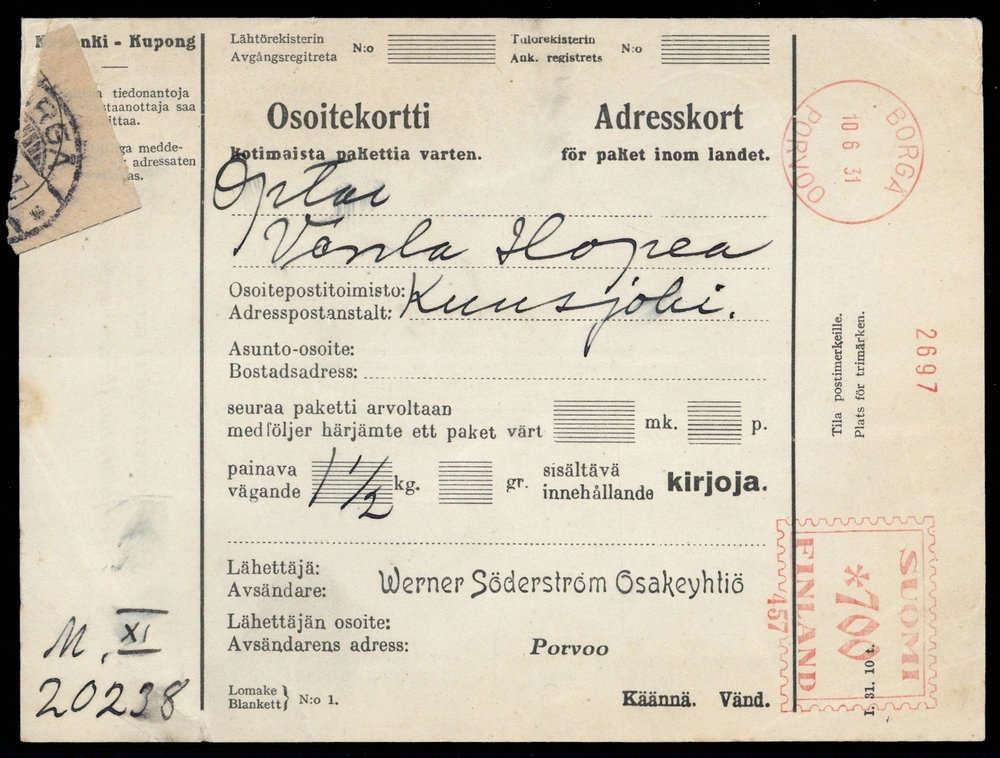 nki - Kupong
tiedonantoja
staanottaja saa
ittaa.
ga medde-
adressaten
as.
RGÅ
M. XI
20238
Lähtörekisterin
Avgångsregitreta
N:o
Tulorekisterin
Ank. registrets
N:o
Osoitekortti
Adresskort
kotimaista pakettia varten.
för paket inom landet.
Venla Hopea
Osoitepostitoimisto:
Adresspostanstalt:
Kuusjoki.
Asunto-osoite:
Bostadsadress:
seuraa paketti arvoltaan
medföljer härjämte ett paket värt
mk.
p.
painava
vägande
1 1/2
kg.
gr.
sisältävä
innehållande
kirjoja.
Lähettäjä:
Avsändare:
Werner Söderström Osakeyhtiö
Lähettäjän osoite:
Avsändarens adress:
Porvoo
Lomake
Blankett
N:o 1.
Käännä. Vänd.
BORGÅ
10 6 31
PORVOO
Tila postimerkeille.
Plats för trimärken.
2697
SUOMI
*700
FINLAND
457
I. 31. 10 t.